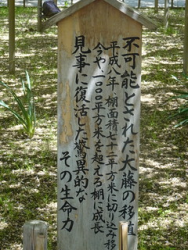 不可能とされた大藤の移植
平成八年、棚面積七十二平方米に切り込み移
今や一〇〇〇平方米を超える棚に成長
見事に復活した驚異的な
その生命力